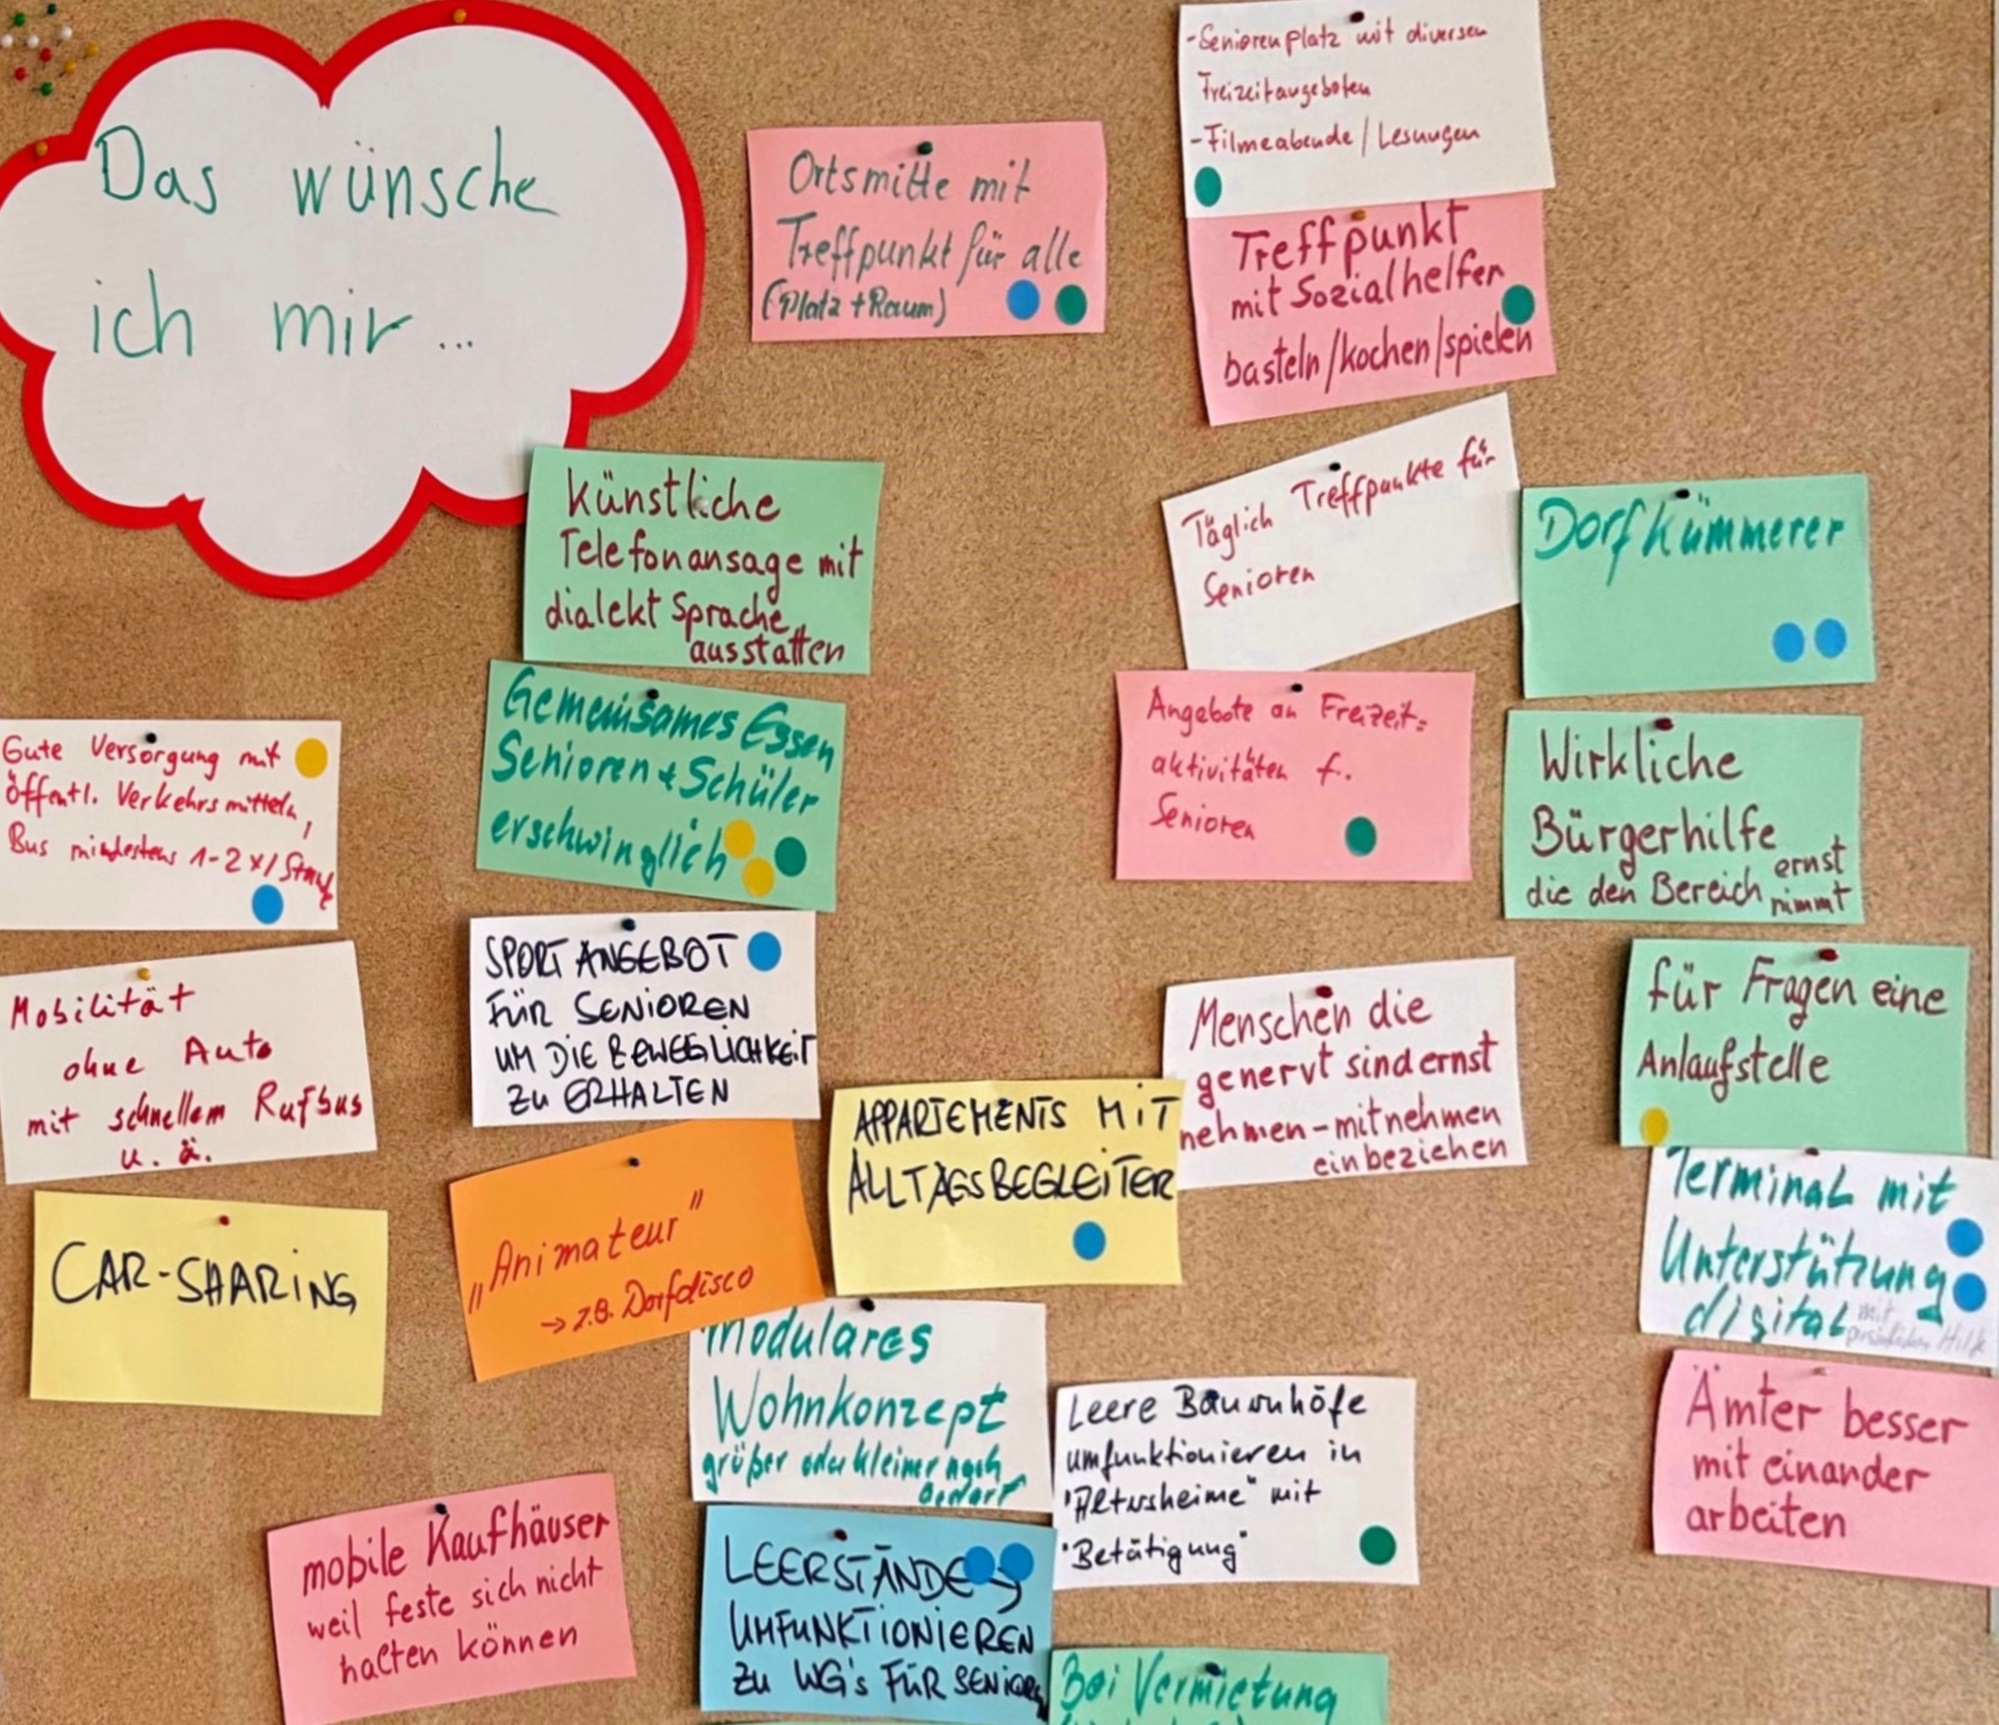 Das wünsche
ich mir...
Ortsmitte mit
Treffpunkt für alle
(Platz + Raum)
- Seniorenplatz mit diversen
Freizeitangeboten
- Filmeabende / Lesungen
Treffpunkt
mit Sozialhelfer
basteln/kochen/spielen
Künstliche
Telefonansage mit
dialekt Sprache
ausstatten
Täglich Treffpunkte für
Senioren
Dorfkümmerer
Gemeinsames Essen
Senioren + Schüler
erschwinglich
Angebote an Freizeit=
aktivitäten f.
Senioren
Wirkliche
Bürgerhilfe
die den Bereich ernst
nimmt
Gute Versorgung mit
öffentl. Verkehrsmitteln,
Bus mindestens 1-2 x /
SPORTANGEBOT
FÜR SENIOREN
UM DIE BEWEGLICHKEIT
ZU ERHALTEN
Mobilität
ohne Auto
mit schnellem Rufbus
u. ä.
Menschen die
genervt sind ernst
nehmen - mitnehmen
einbeziehen
für Fragen eine
Anlaufstelle
APPARTEMENTS MIT
ALLTAGSBEGLEITER
„Animateur"
→ z.B. Dorfdisco
CAR-SHARING
Terminal mit
Unterstützung
digital mit
persönlicher Hilfe
Modulares
Wohnkonzept
größer oder kleiner nach
Bedarf
Leere Bauernhöfe
umfunktionieren in
"Altersheime" mit
"Betätigung"
Ämter besser
mit einander
arbeiten
mobile Kaufhäuser
weil feste sich nicht
halten können
LEERSTÄNDE →
UMFUNKTIONIEREN
ZU WG's FÜR SENIOREN
Bei Vermietung